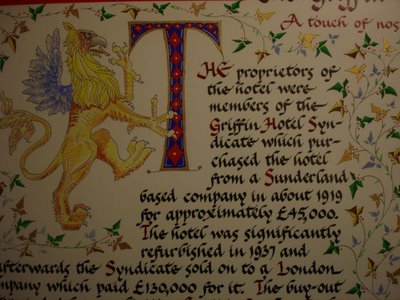 The Griffin
A touch of nos
THE proprietors of
the hotel were
members of the
Griffin Hotel Syn-
dicate which pur-
chased the hotel
from a Sunderland
based company in about 1919
for approximately £45,000.
The hotel was significantly
refurbished in 1937 and
afterwards the Syndicate sold on to a London
company which paid £130,000 for it. The buy-out